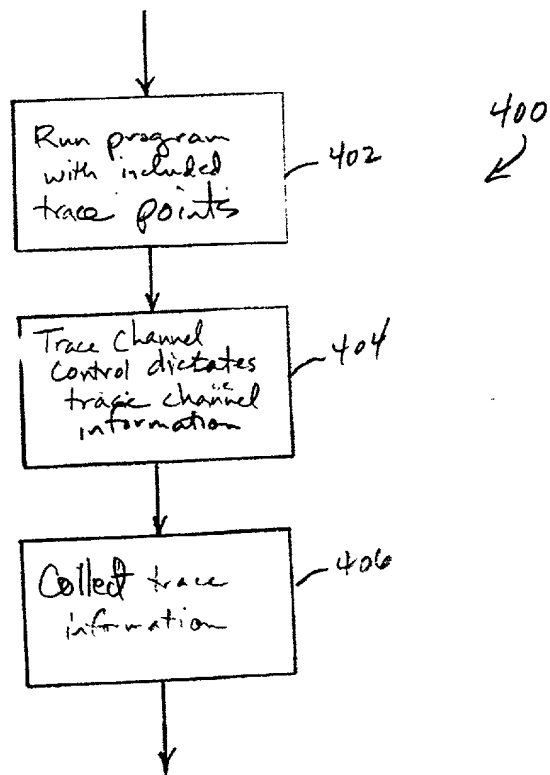 400
Run program
with included
trace points
402
Trace Channel
Control dictates
trace channel
information
404
Collect trace
information
406